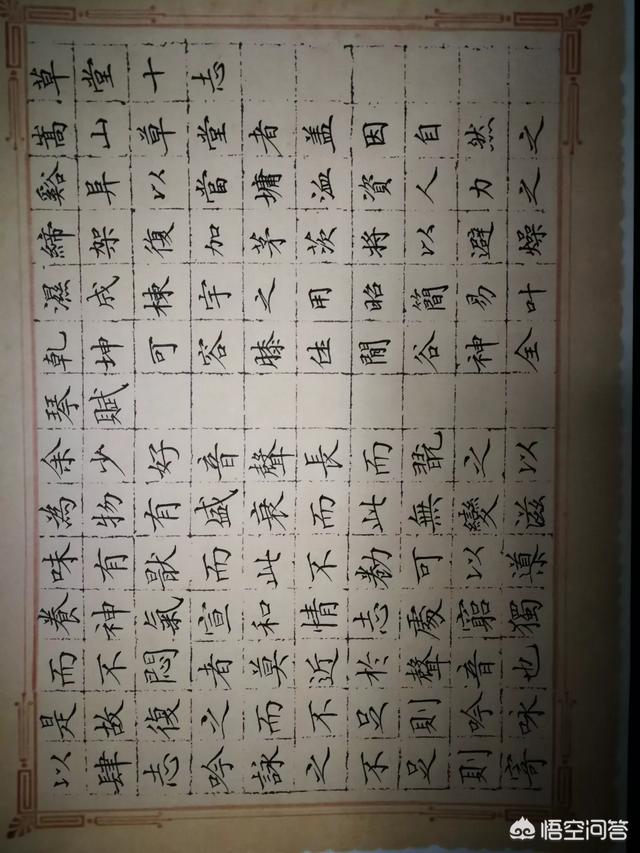 草堂十志
嵩山草堂者盖因自然之
谿阜以當墉洫資人力之
締架復加茅茨將以避燥
濕成棟宇之用昭簡易叶
乾坤可容膝休閒谷神全
琴賦
余少好音聲長而翫之以
為物有盛衰而此無變滋
味有猒而此不勌可以導
養神氣宣和情志處窮獨
而不悶者莫近於聲音也
是故復之而不足則吟咏
以肆志吟詠之不足則寄
悟空问答